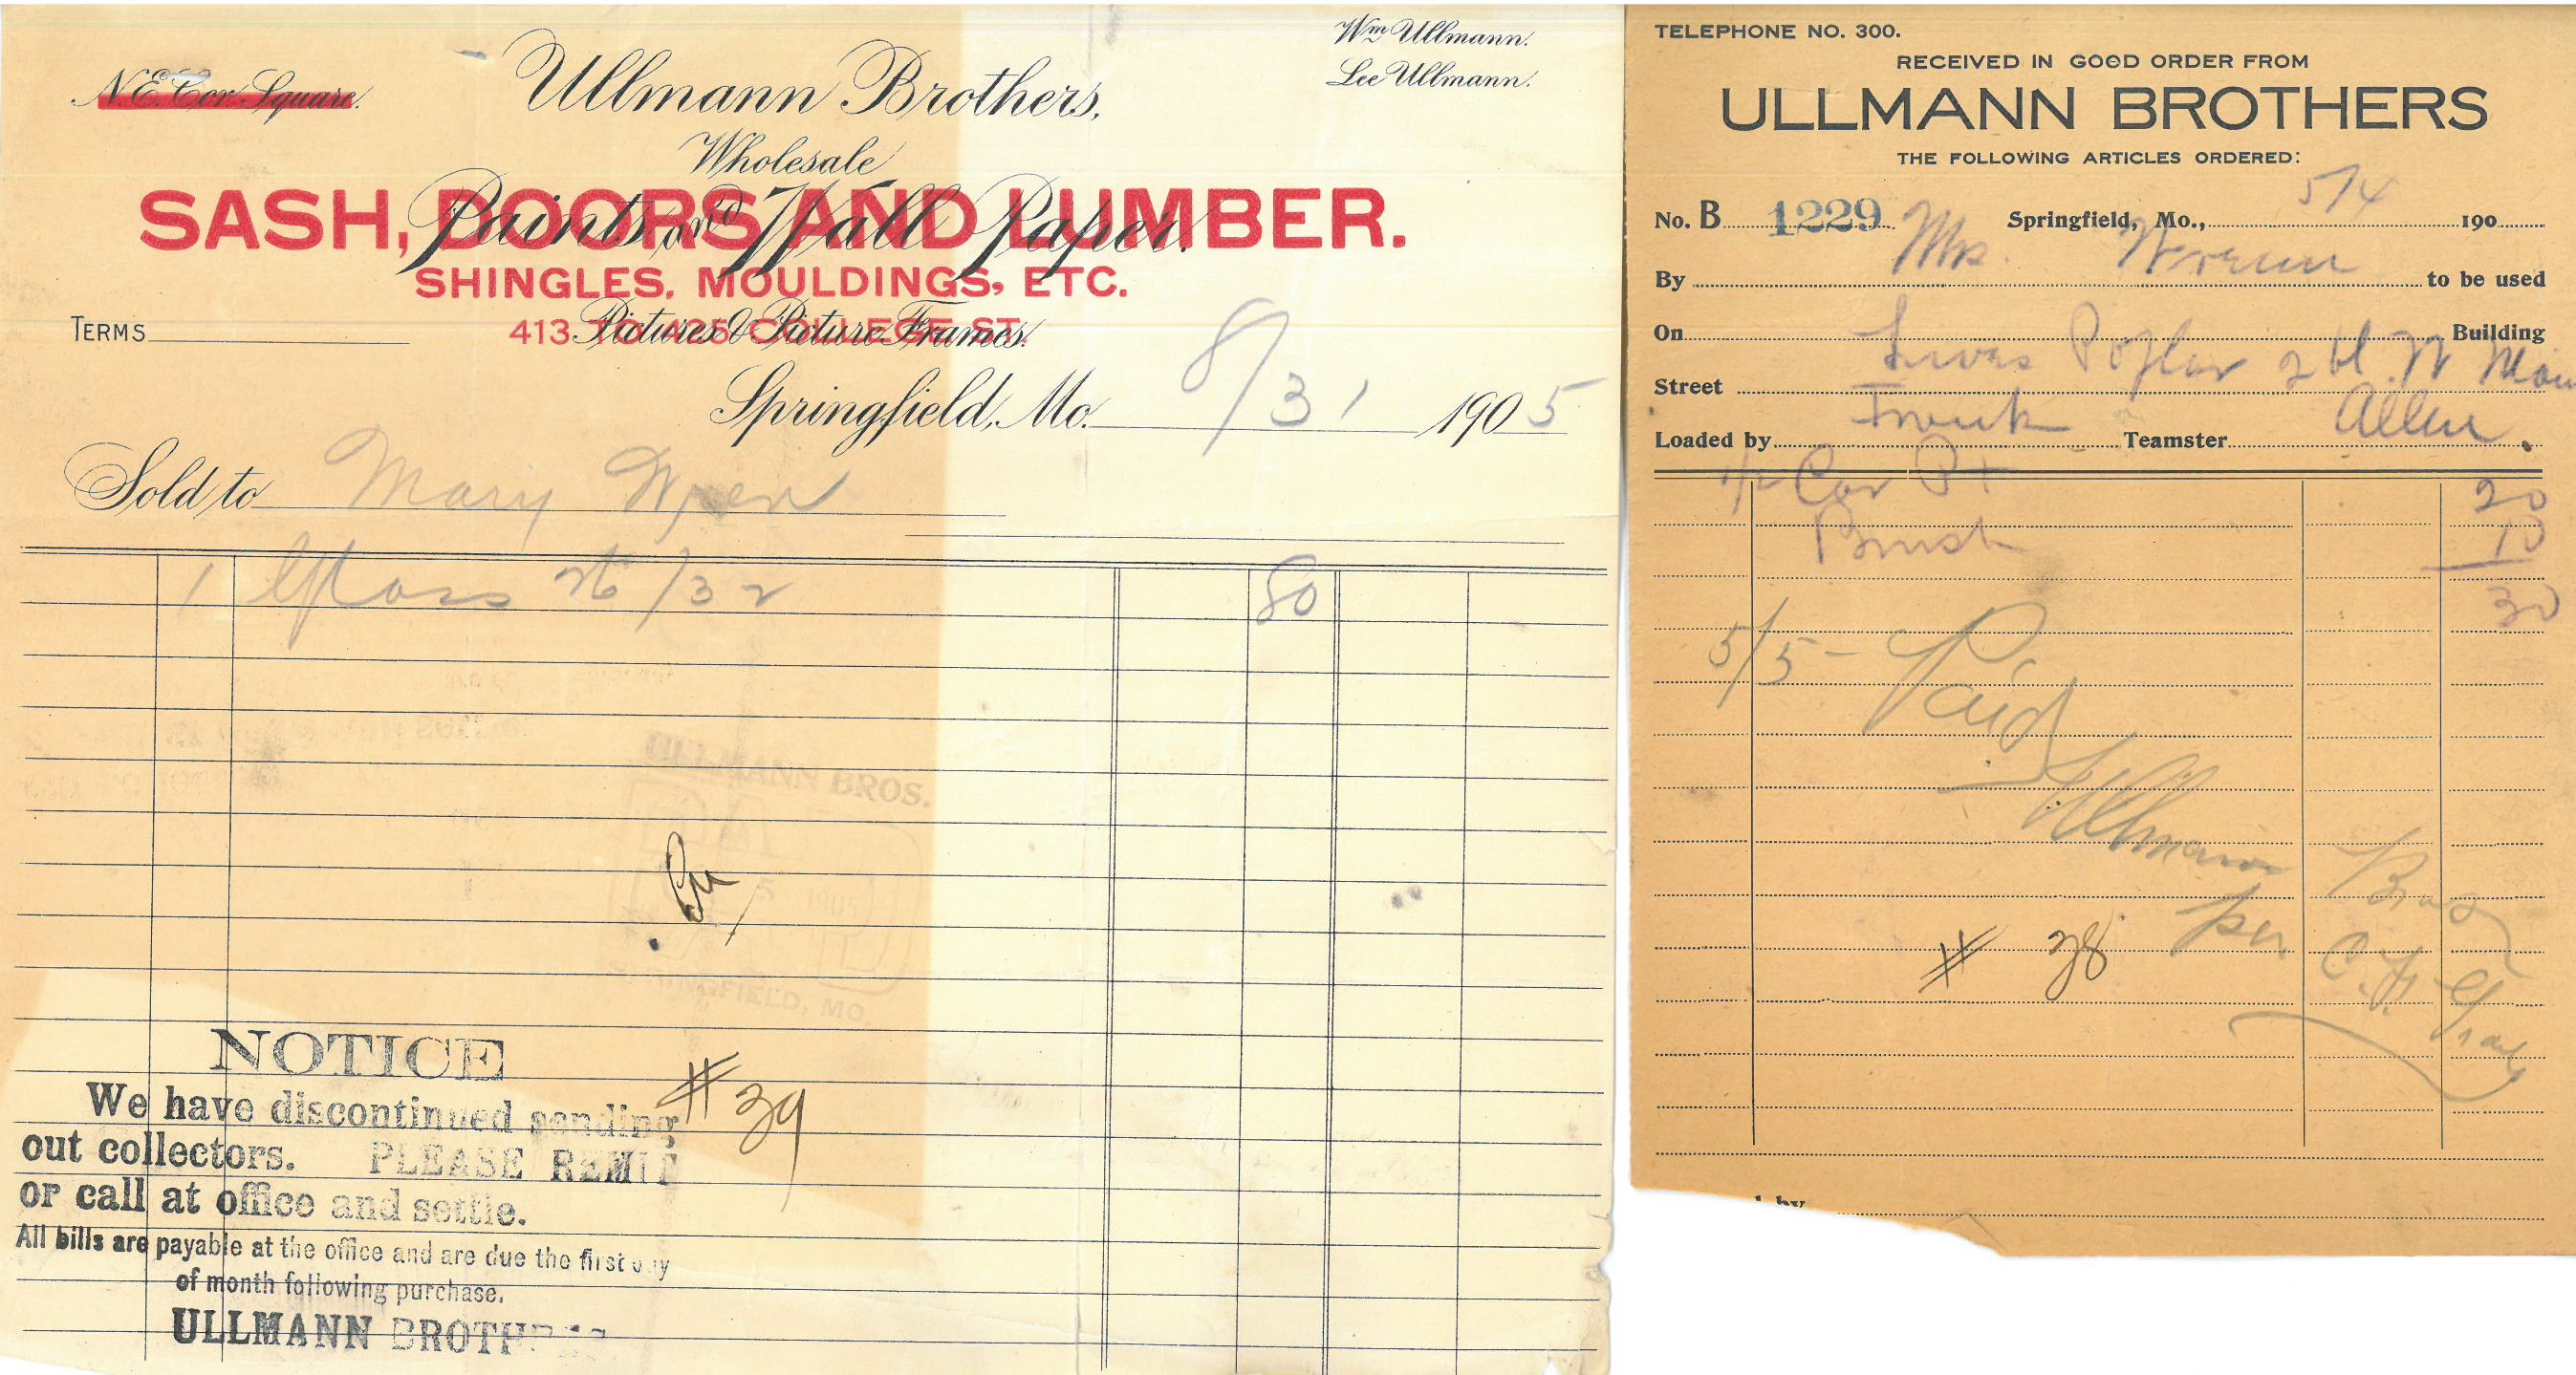 N.E. Cor. Square.
Ullmann Brothers,
Wm Ullmann.
Lee Ullmann.
Wholesale
SASH, DOORS AND LUMBER.
Paints and Wall Paper.
SHINGLES, MOULDINGS, ETC.
413 TO 425 COLLEGE ST.
Pictures & Picture Frames.
TERMS
Springfield, Mo. 8/31 1905
Sold to Mary Wren
1 Glass 26/32 80
ULLMANN BROS.
5 1905
SPRINGFIELD, MO.
#39
NOTICE
We have discontinued sending
out collectors. PLEASE REMIT
or call at office and settle.
All bills are payable at the office and are due the first day
of month following purchase.
ULLMANN BROTHERS
TELEPHONE NO. 300.
RECEIVED IN GOOD ORDER FROM
ULLMANN BROTHERS
THE FOLLOWING ARTICLES ORDERED:
No. B 1229 Springfield, Mo., 5/4 190
By Mrs. to be used
On Building
Street Poplar 2 bl. N Main
Loaded by Frank Teamster Allen.
1/2 Car Pt 20
Brush 10
30
5/5 - Paid
Ullmann Bros
per
# 38
by